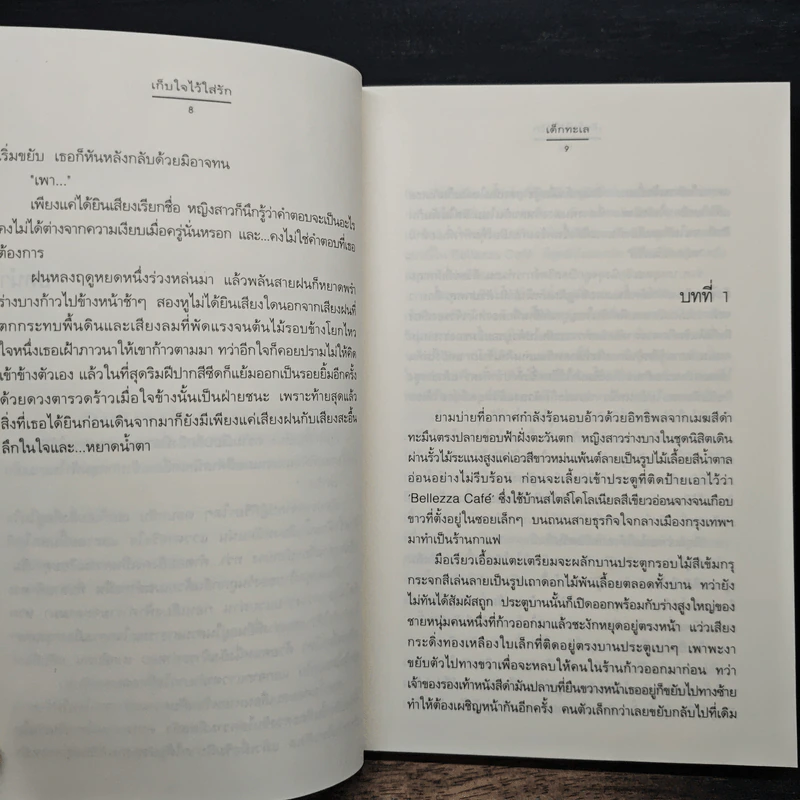 เก็บใจไว้ใส่รัก
8
เริ่มขยับ เธอก็หันหลังกลับด้วยมิอาจทน
"เพา..."
เพียงแค่ได้ยินเสียงเรียกชื่อ หญิงสาวก็นึกรู้ว่าคำตอบจะเป็นอะไร
คงไม่ได้ต่างจากความเงียบเมื่อครู่นั่นหรอก และ...คงไม่ใช่คำตอบที่เธอ
ต้องการ
ฝนหลงฤดูหยดหนึ่งร่วงหล่นมา แล้วพลันสายฝนก็หยาดพรำ
ร่างบางก้าวไปข้างหน้าช้าๆ สองหูไม่ได้ยินเสียงใดนอกจากเสียงฝนที่
ตกกระทบพื้นดินและเสียงลมที่พัดแรงจนต้นไม้รอบข้างโยกไหว
ใจหนึ่งเธอเฝ้าภาวนาให้เขาก้าวตามมา ทว่าอีกใจก็คอยปรามไม่ให้คิด
เข้าข้างตัวเอง แล้วในที่สุดริมฝีปากสีซีดก็แย้มออกเป็นรอยยิ้มอีกครั้ง
ด้วยดวงตารวดร้าวเมื่อใจข้างนั้นเป็นฝ่ายชนะ เพราะท้ายสุดแล้ว
สิ่งที่เธอได้ยินก่อนเดินจากมาก็ยังมีเพียงแค่เสียงฝนกับเสียงสะอื้น
ลึกในใจและ...หยาดน้ำตา
เด็กทะเล
9
บทที่ 1
ยามบ่ายที่อากาศกำลังร้อนอบอ้าวด้วยอิทธิพลจากเมฆสีดำ
ทะมึนตรงปลายขอบฟ้าฝั่งตะวันตก หญิงสาวร่างบางในชุดนิสิตเดิน
ผ่านรั้วไม้ระแนงสูงแค่เอวสีขาวหม่นเพ้นต์ลายเป็นรูปไม้เลื้อยสีน้ำตาล
อ่อนอย่างไม่รีบร้อน ก่อนจะเลี้ยวเข้าประตูที่ติดป้ายเอาไว้ว่า
'Bellezza Café' ซึ่งใช้บ้านสไตล์โคโลเนียลสีเขียวอ่อนจางจนเกือบ
ขาวที่ตั้งอยู่ในซอยเล็กๆ บนถนนสายธุรกิจใจกลางเมืองกรุงเทพฯ
มาทำเป็นร้านกาแฟ
มือเรียวเอื้อมแตะเตรียมจะผลักบานประตูกรอบไม้สีเข้มกรุ
กระจกสีเล่นลายเป็นรูปเถาดอกไม้พันเลื้อยตลอดทั้งบาน ทว่ายัง
ไม่ทันได้สัมผัสถูก ประตูบานนั้นก็เปิดออกพร้อมกับร่างสูงใหญ่ของ
ชายหนุ่มคนหนึ่งที่ก้าวออกมาแล้วชะงักหยุดอยู่ตรงหน้า แว่วเสียง
กระดิ่งทองเหลืองใบเล็กที่ติดอยู่ตรงบานประตูเบาๆ เพาพะงา
ขยับตัวไปทางขวาเพื่อจะหลบให้คนในร้านก้าวออกมาก่อน ทว่า
เจ้าของรองเท้าหนังสีดำมันปลาบที่ยืนขวางหน้าเธออยู่ก็ขยับไปทางซ้าย
ทำให้ต้องเผชิญหน้ากันอีกครั้ง คนตัวเล็กกว่าเลยขยับกลับไปที่เดิม